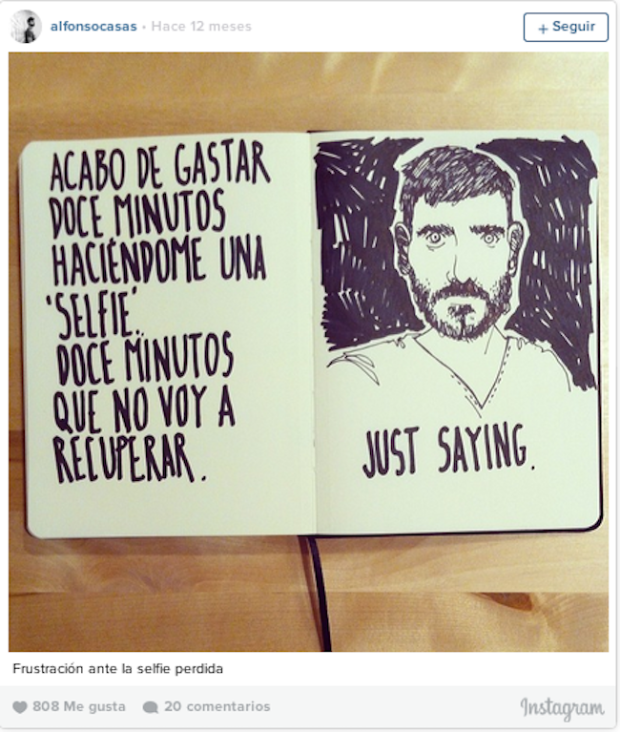 alfonsocasas • Hace 12 meses
+ Seguir
ACABO DE GASTAR
DOCE MINUTOS
HACIÉNDOME UNA
'SELFIE'.
DOCE MINUTOS
QUE NO VOY A
RECUPERAR.
JUST SAYING.
Frustración ante la selfie perdida
808 Me gusta
20 comentarios
Instagram